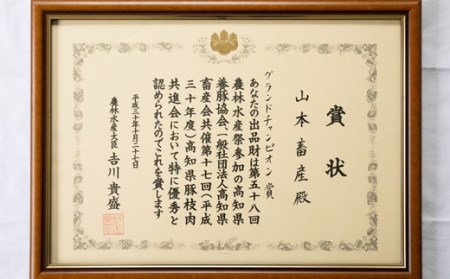 賞状
山本畜産殿
グランドチャンピオン賞
あなたの出品財は第五十八回
農林水産祭参加の高知県
養豚協会、一般社団法人高知県
畜産会共催第十七回(平成
三十年度)高知県豚枝肉
共進会において特に優秀と
認められたのでこれを賞します
平成三十年十月二十七日
農林水産大臣 吉川貴盛